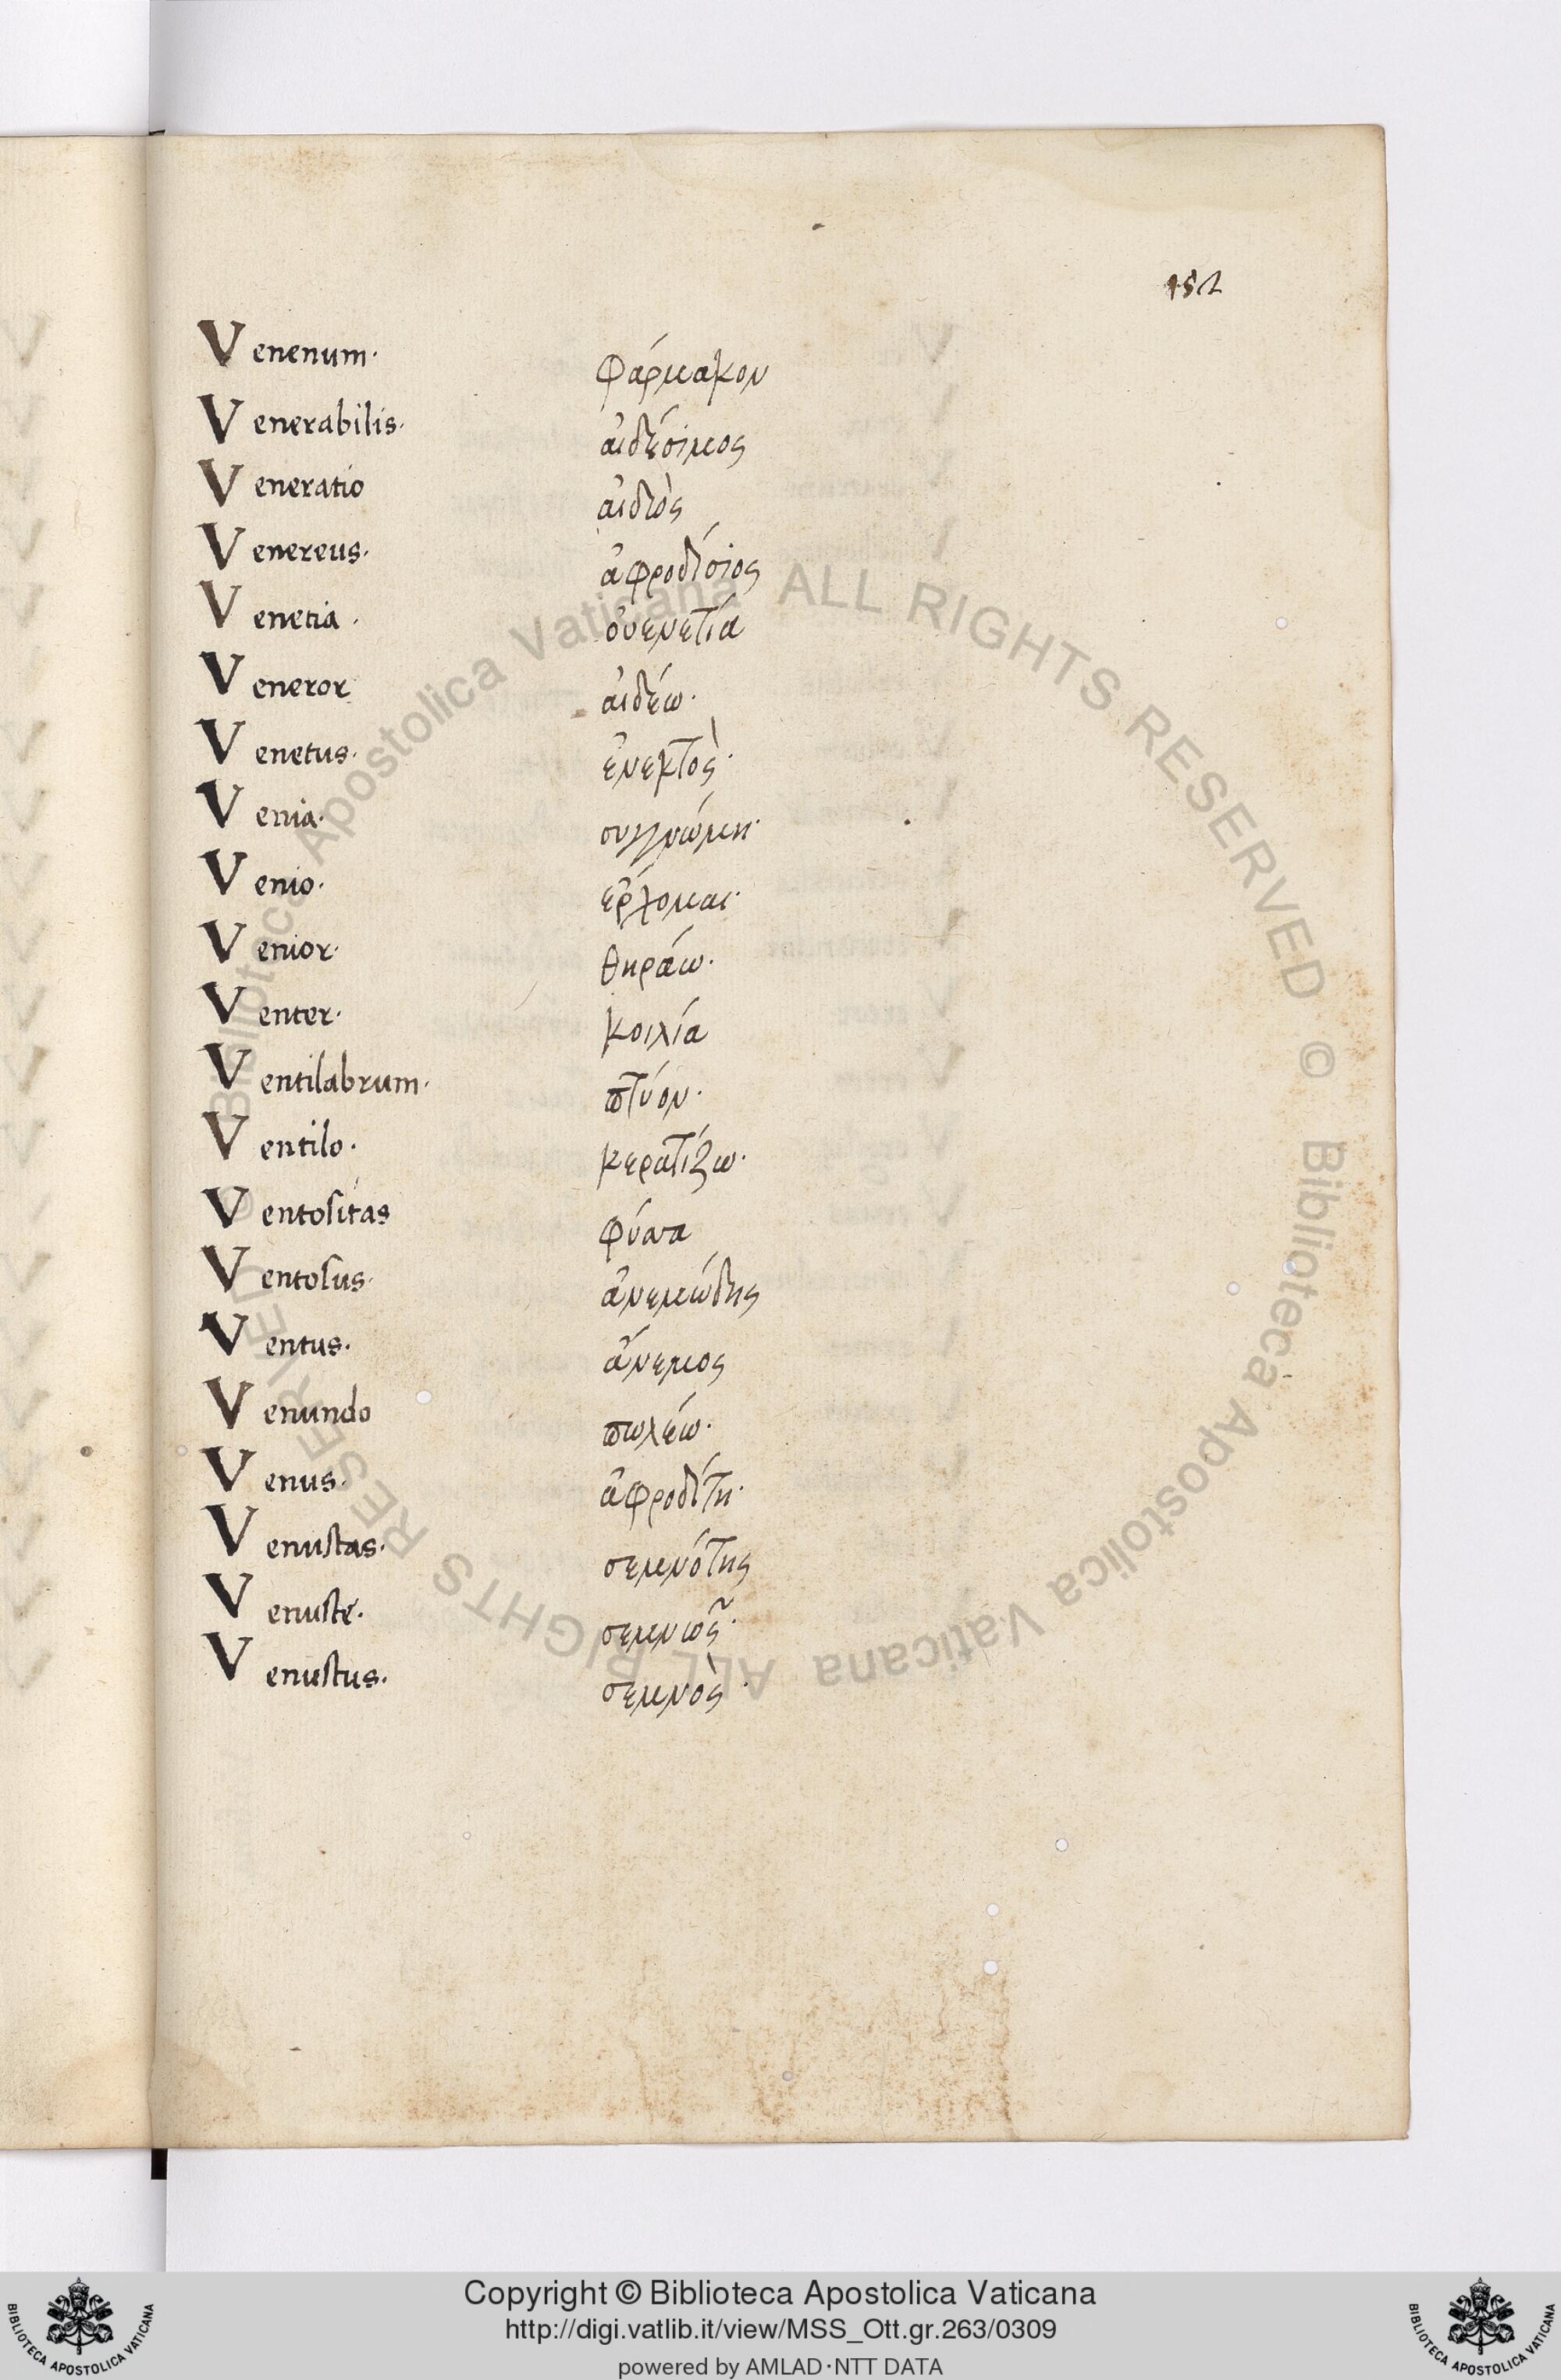 152
Venenum· φάρμακον
Venerabilis· αἰδέσιμος
Veneratio αἰδὼς
Venereus· ἀφροδίσιος
Venetia · οὐενετία
Veneror αἰδέω·
Venetus· ἐνεκτὸς·
Venia· συγγνώμη·
Venio· ἔρχομαι·
Venior· θηράω·
Venter· κοιλία
Ventilabrum· πτύον·
Ventilo· κερατίζω·
Ventositas φύσα
Ventosus· ἀνεμώδης
Ventus· ἄνεμος
Venundo πωλέω·
Venus· ἀφροδίτη·
Venustas· σεμνότης
Venuste· σεμνῶς·
Venustus· σεμνὸς·
© Biblioteca Apostolica Vaticana ALL RIGHTS RESERVED © Biblioteca Apostolica Vaticana ALL RIGHTS RESERVED
Copyright © Biblioteca Apostolica Vaticana
http://digi.vatlib.it/view/MSS_Ott.gr.263/0309
powered by AMLAD·NTT DATA
BIBLIOTECA APOSTOLICA VATICANA
BIBLIOTECA APOSTOLICA VATICANA